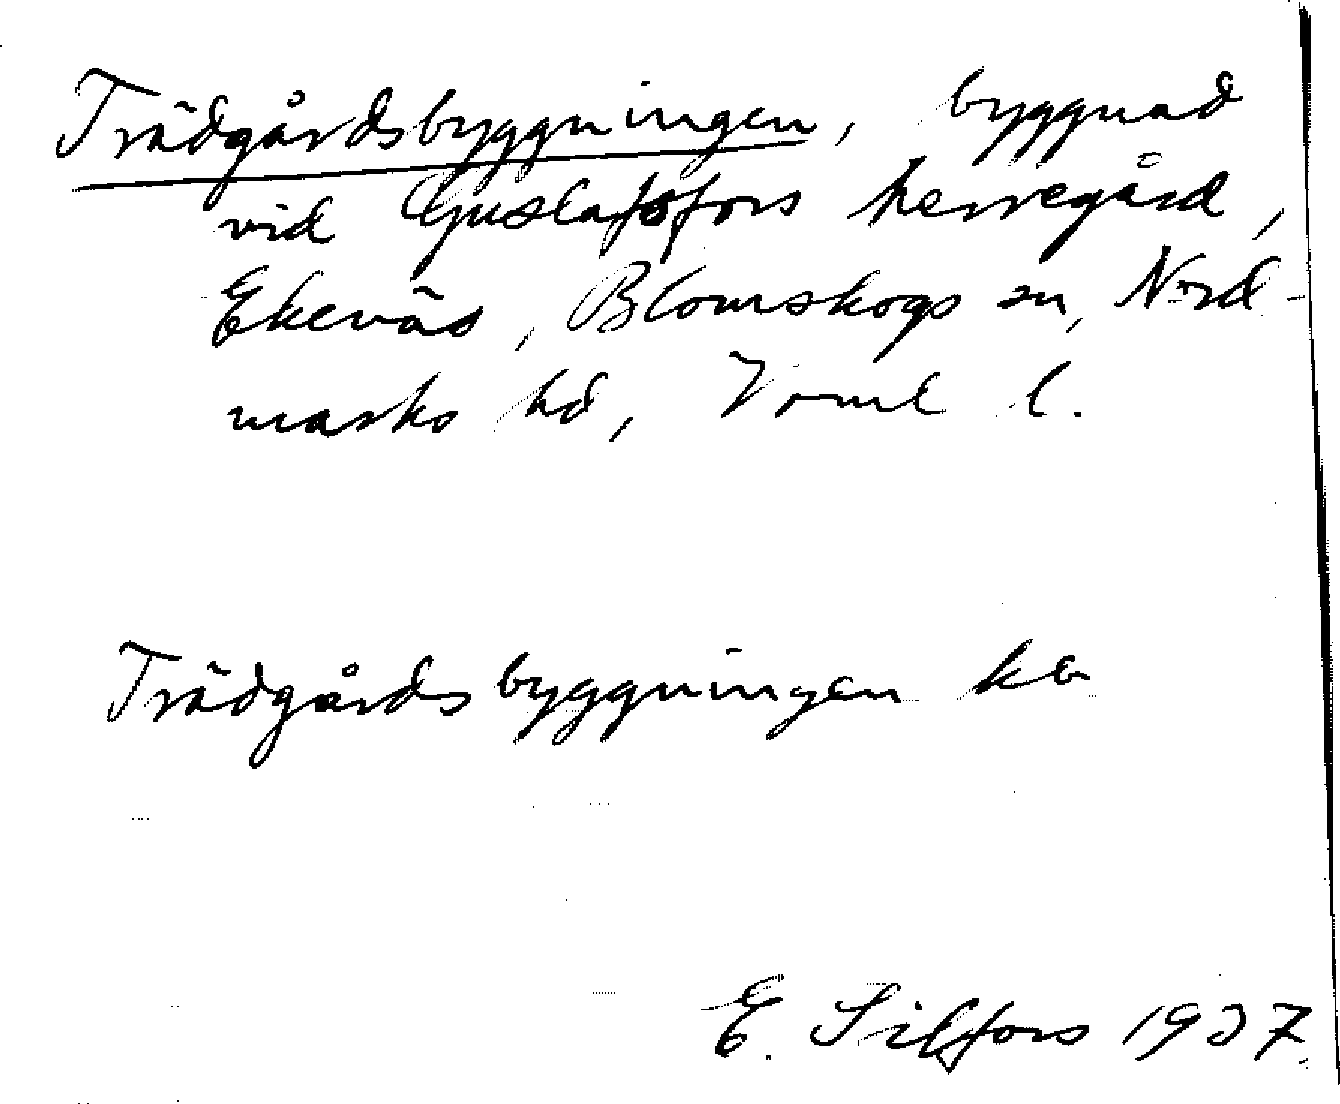 Trädgårdsbyggningen, byggnad
vid Gustafsfors herregård,
Ekenäs, Blomskogs sn, Nord-
marks hd, Vrml l.
Trädgårdsbyggningen ka
E. Silfors 1937